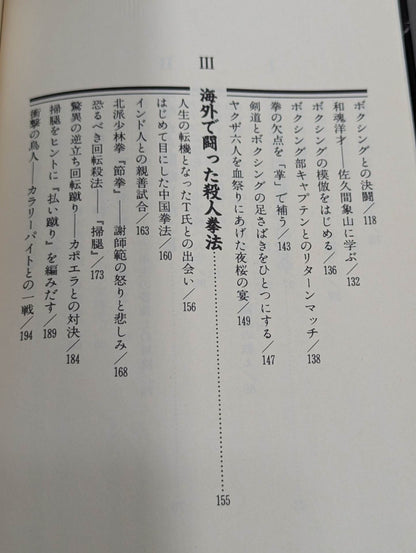 ボクシングとの決闘／118
和魂洋才――佐久間象山に学ぶ／132
ボクシングの模倣をはじめる／136
ボクシング部キャプテンとのリターンマッチ／138
拳の欠点を「掌」で補う／143
剣道とボクシングの足さばきをひとつにする／147
ヤクザ六人を血祭りにあげた夜桜の宴／149
III
海外で闘った殺人拳法…………155
人生の転機となったT氏との出会い／156
はじめて目にした中国拳法／160
インド人との親善試合／163
北派少林拳『節拳』――謝師範の怒りと悲しみ／168
恐るべき回転殺法――『掃腿』／173
驚異の逆立ち回転蹴り――カポエラとの対決／184
掃腿をヒントに『払い蹴り』を編みだす／189
衝撃の鳥人――カラリーパイトとの一戦／194